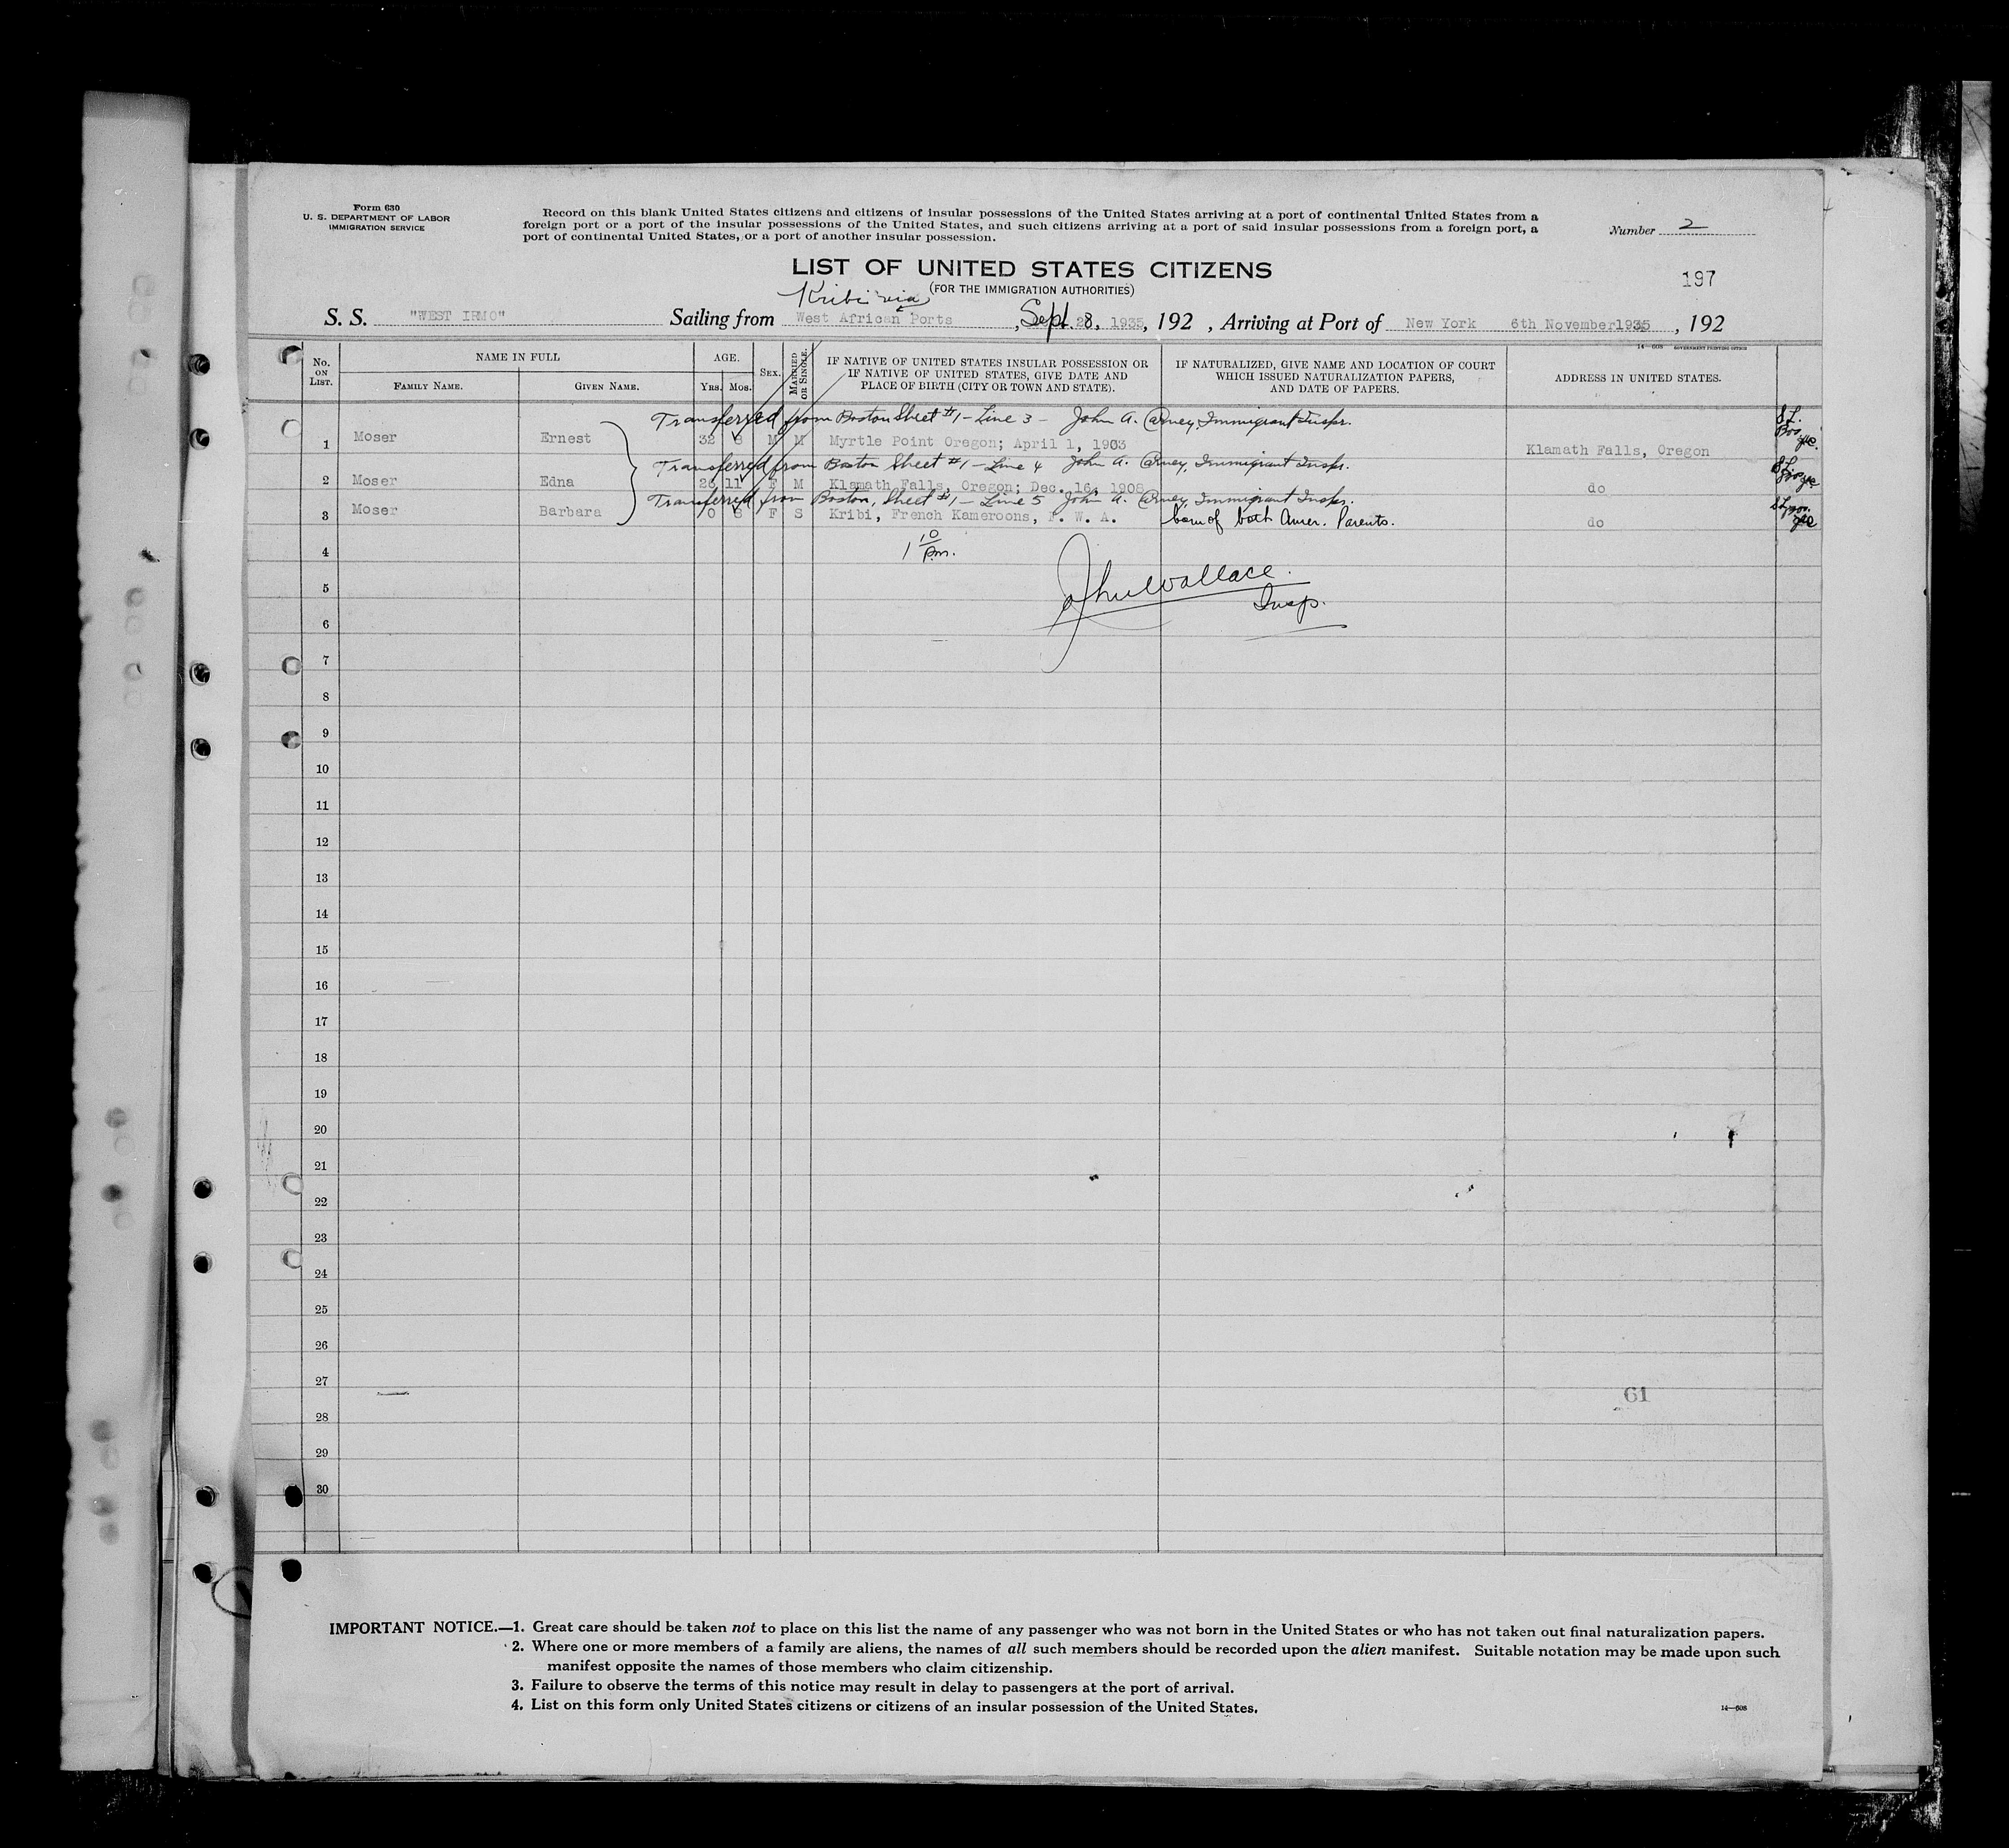 Form 630
U. S. DEPARTMENT OF LABOR
IMMIGRATION SERVICE
Record on this blank United States citizens and citizens of insular possessions of the United States arriving at a port of continental United States from a
foreign port or a port of the insular possessions of the United States, and such citizens arriving at a port of said insular possessions from a foreign port, a
port of continental United States, or a port of another insular possession.
Number 2
LIST OF UNITED STATES CITIZENS
197
(FOR THE IMMIGRATION AUTHORITIES)
Kribi via
S. S. "WEST IRMO" Sailing from West African Ports, Sept. 28, 1935, 192 , Arriving at Port of New York 6th November1935, 192
14—608 GOVERNMENT PRINTING OFFICE
No. ON LIST.
NAME IN FULL
FAMILY NAME.
GIVEN NAME.
AGE.
YRS.
MOS.
SEX.
MARRIED OR SINGLE.
IF NATIVE OF UNITED STATES INSULAR POSSESSION OR
IF NATIVE OF UNITED STATES, GIVE DATE AND
PLACE OF BIRTH (CITY OR TOWN AND STATE).
IF NATURALIZED, GIVE NAME AND LOCATION OF COURT
WHICH ISSUED NATURALIZATION PAPERS,
AND DATE OF PAPERS.
ADDRESS IN UNITED STATES.
Transferred from Boston Sheet #1 – Line 3 – John A. Carney, Immigrant Inspr.
1 Moser Ernest 32 8 M M Myrtle Point Oregon; April 1, 1903 Klamath Falls, Oregon
Transferred from Boston Sheet #1 – Line 4 John A. Carney, Immigrant Inspr.
2 Moser Edna 26 11 F M Klamath Falls, Oregon; Dec. 16, 1908 do
Transferred from Boston, Sheet #1 – Line 5 John A. Carney, Immigrant Inspr.
3 Moser Barbara 0 8 F S Kribi, French Kameroons, F. W. A. born of both Amer. Parents. do
4 1 10 pm.
5 Wallace.
Insp.
6
7
8
9
10
11
12
13
14
15
16
17
18
19
20
21
22
23
24
25
26
27
61
28
29
30
IMPORTANT NOTICE.—1. Great care should be taken not to place on this list the name of any passenger who was not born in the United States or who has not taken out final naturalization papers.
2. Where one or more members of a family are aliens, the names of all such members should be recorded upon the alien manifest. Suitable notation may be made upon such
manifest opposite the names of those members who claim citizenship.
3. Failure to observe the terms of this notice may result in delay to passengers at the port of arrival.
4. List on this form only United States citizens or citizens of an insular possession of the United States.
14—608